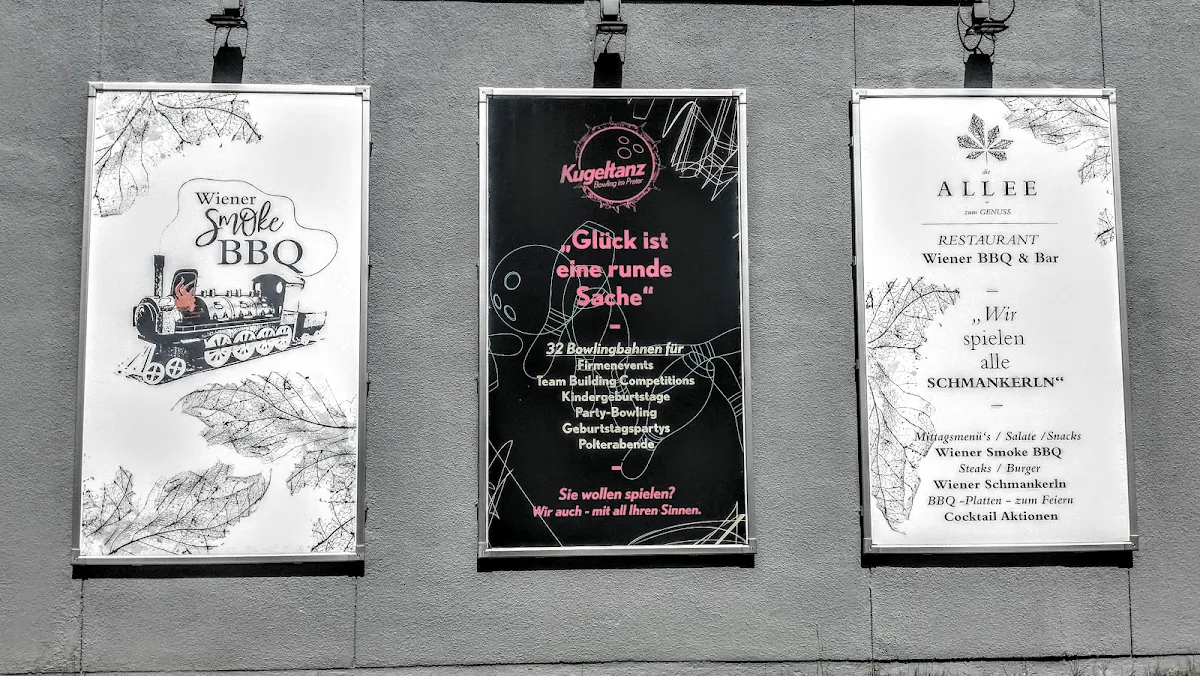 Wiener
Smoke
BBQ
Kugeltanz
Bowling im Prater
„Glück ist
eine runde
Sache“
32 Bowlingbahnen für
Firmenevents
Team Building Competitions
Kindergeburtstage
Party-Bowling
Geburtstagspartys
Polterabende
Sie wollen spielen?
Wir auch - mit all Ihren Sinnen.
die
ALLEE
zum GENUSS
RESTAURANT
Wiener BBQ & Bar
„Wir
spielen
alle
SCHMANKERLN“
Mittagsmenü's / Salate /Snacks
Wiener Smoke BBQ
Steaks / Burger
Wiener Schmankerln
BBQ -Platten - zum Feiern
Cocktail Aktionen